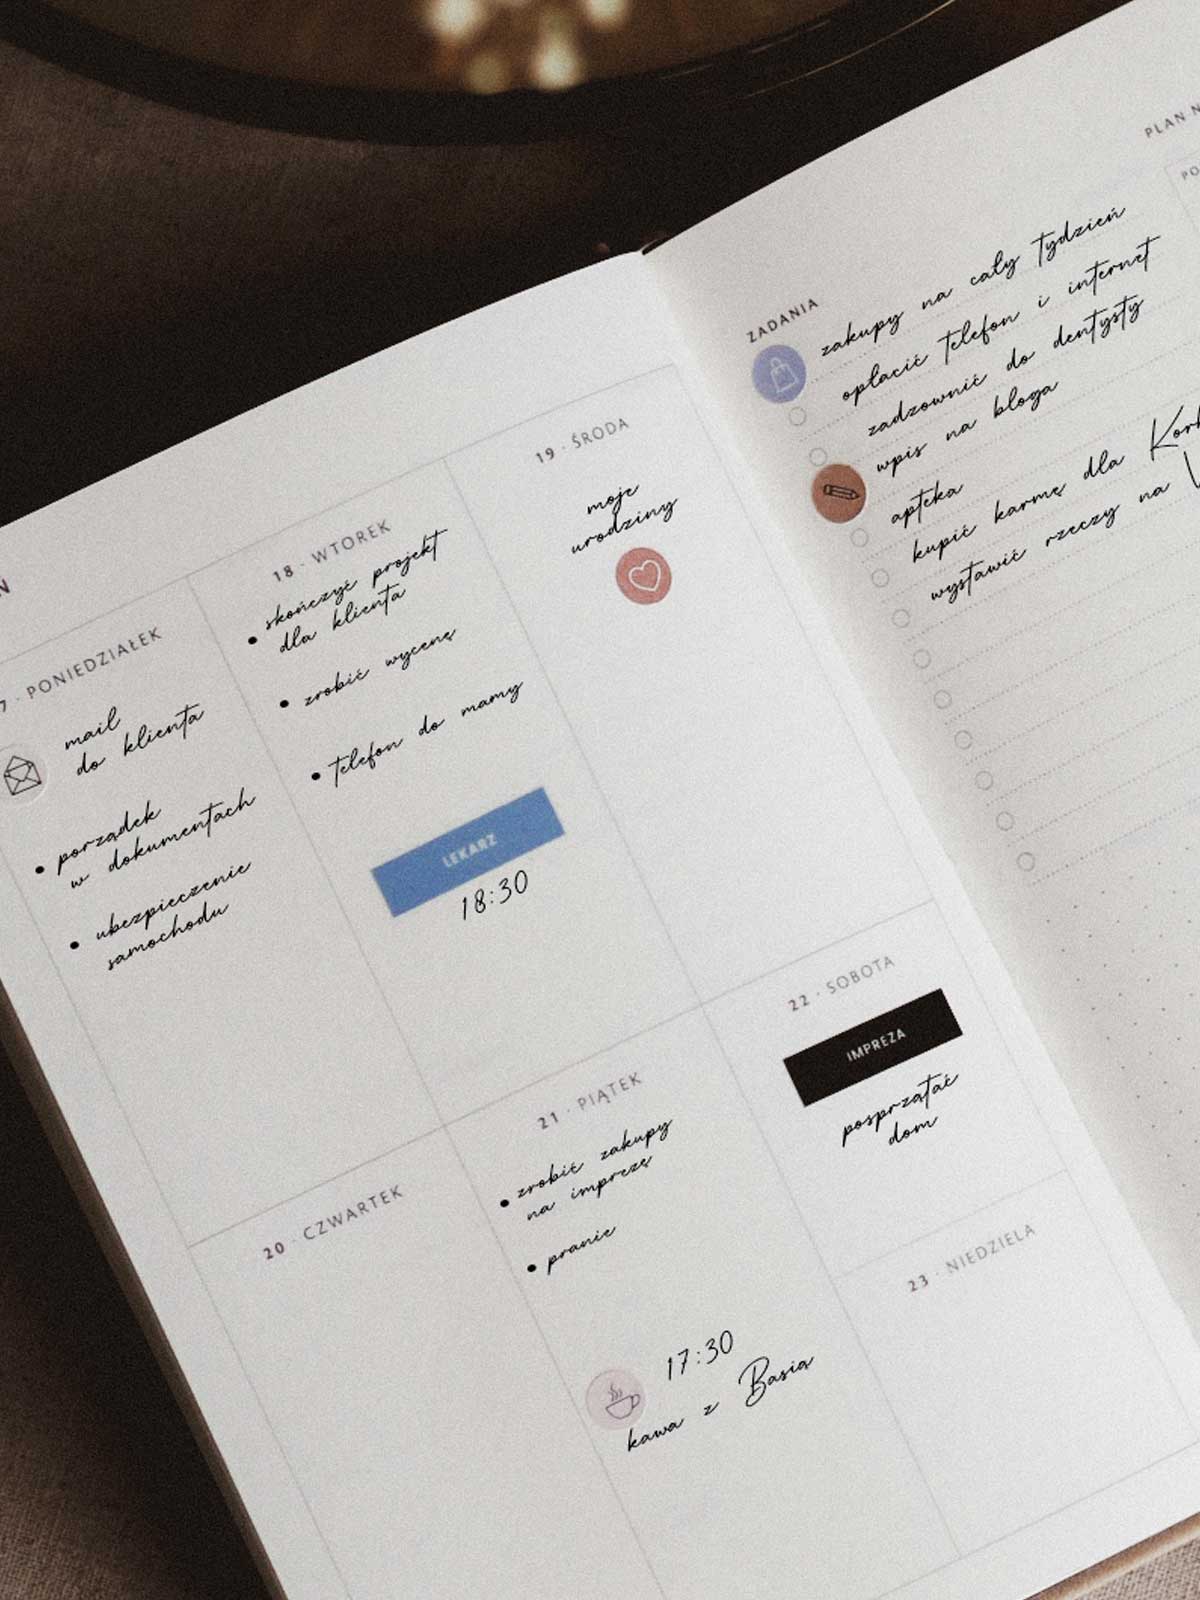 7 · PONIEDZIAŁEK
mail
do klienta
• porządek
w dokumentach
• ubezpieczenie
samochodu
18 · WTOREK
• skończyć projekt
dla klienta
• zrobić wycenę
• telefon do mamy
LEKARZ
18:30
19 · ŚRODA
moje
urodziny
20 · CZWARTEK
21 · PIĄTEK
• zrobić zakupy
na imprezę
• pranie
17:30
kawa z Basią
22 · SOBOTA
IMPREZA
posprzątać
dom
23 · NIEDZIELA
PLAN
ZADANIA
zakupy na cały tydzień
opłacić telefon i internet
zadzownić do dentysty
wpis na bloga
apteka
kupić karmę dla
wystawić rzeczy na